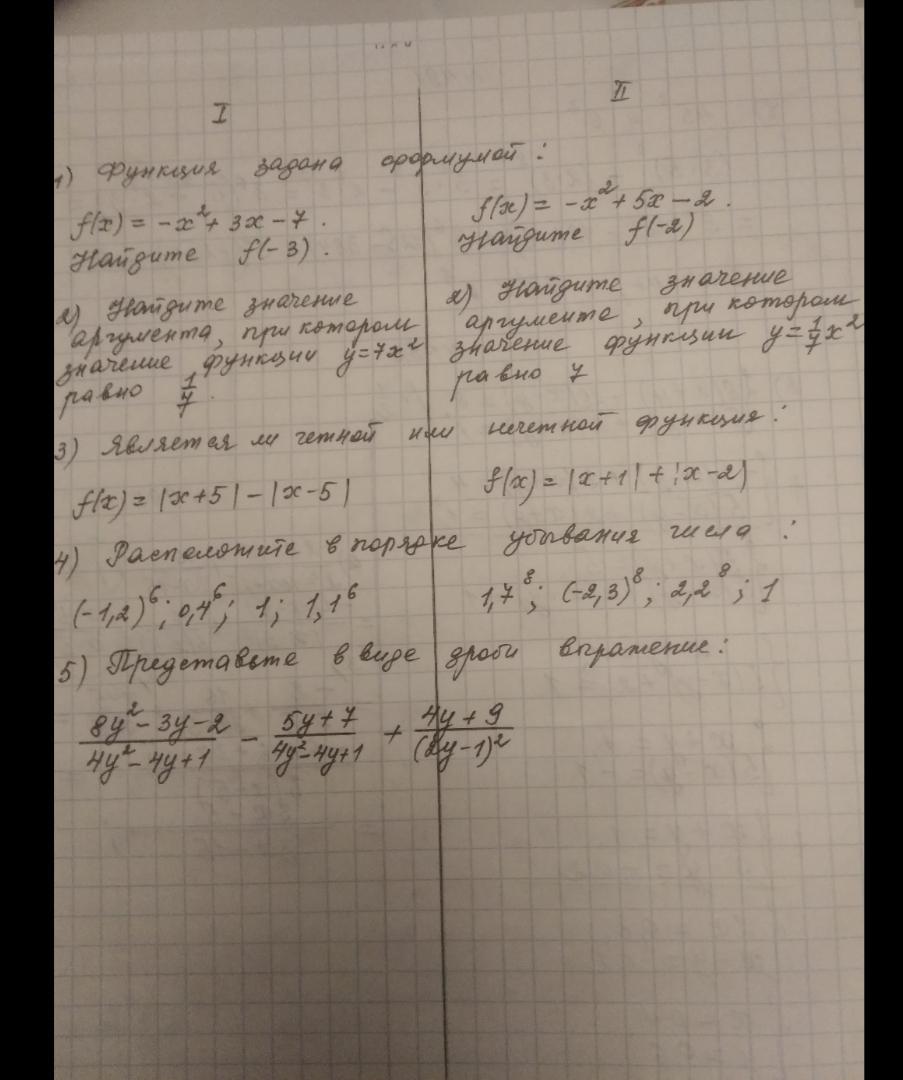 I
II
1) Функция задана формулой:
f(x) = -x² + 3x - 7.
Найдите f(-3).
f(x) = -x² + 5x - 2.
Найдите f(-2)
2) Найдите значение
аргумента, при котором
значение функции y=7x²
равно 1/7.
2) Найдите значение
аргумента, при котором
значение функции y=1/7x²
равно 7
3) Является ли четной или нечетной функция:
f(x) = |x+5| - |x-5|
f(x) = |x+1| + |x-2|
4) Расположите в порядке убывания числа :
(-1,2)⁶; 0,4⁶; 1; 1,1⁶
1,7⁸; (-2,3)⁸; 2,2⁸; 1
5) Представьте в виде дроби выражение:
(8y² - 3y - 2)/(4y² - 4y + 1) - (5y + 7)/(4y² - 4y + 1) + (4y + 9)/(2y - 1)²